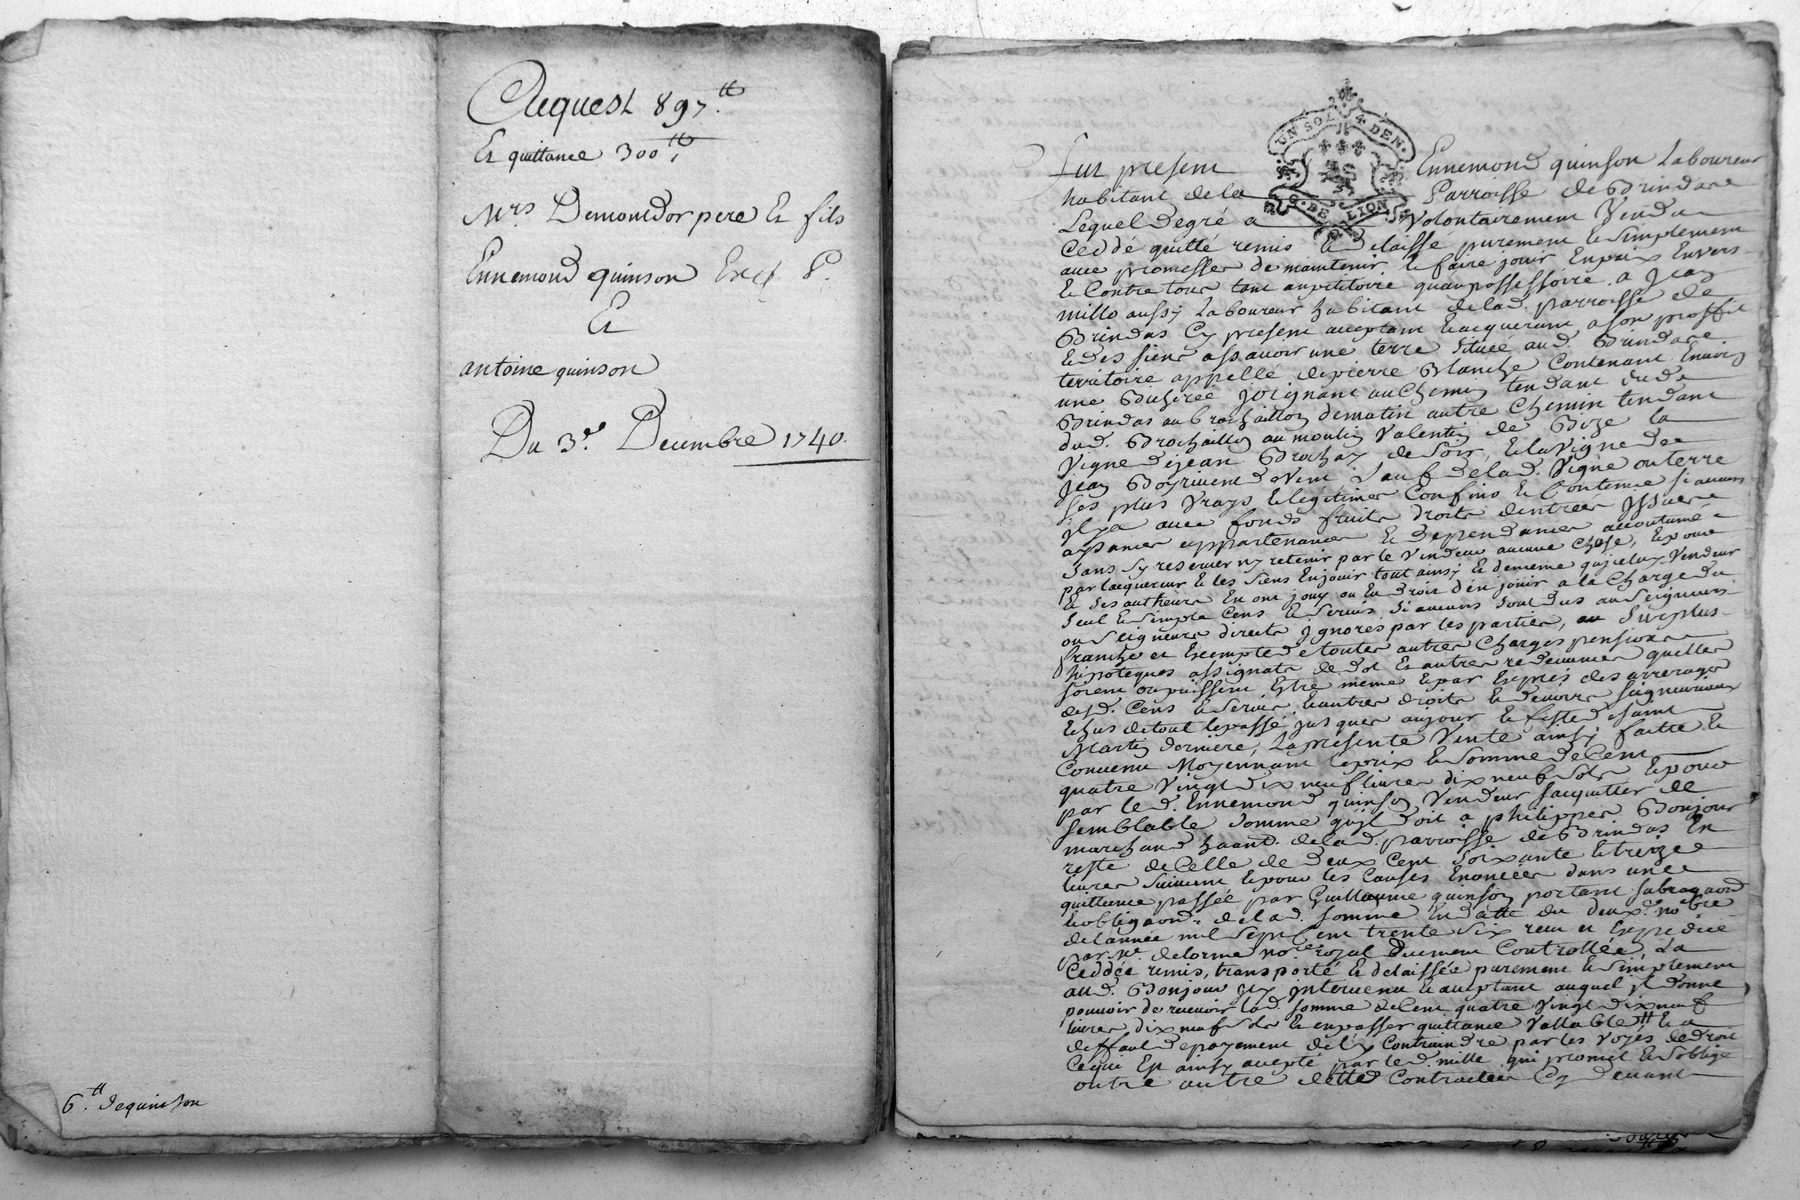 Acquest 897.ᵗᵗ
Et quittance 300ᵗᵗ.
Mʳˢ Demontdor pere Et fils
Ennemond quinson
Et
antoine quinson
Du 3.ᵉ Decembre 1740.
6.ᵗᵗ dequinson
UN SOL 4 DEN.
G. DE LION
Fut present Ennemond quinson Laboureur
habitant de la Parroisse de Brindas
Lequel degré a Volontairement Vendu
Ceddé quitté remis & delaisse purement & simplement
avec promesse de maintenir & faire jouir Enpaix Envers
& Contre tous tant aupetitoire quaupossessoire a Jean
millo aussy Laboureur habitant delad. parroisse de
Brindas Cy present aceptant & acquerant a son proffit
& des siens assavoir une terre Située aud. Brindas
territoire appellé depierre Blanche Contenant Environ
une Bicherée joignant au Chemin tendant dud.
Brindas au Brochaillon dematin autre Chemin tendant
dud. Brochaillon au moulin Valentin de Bize la
Vigne dejean Brochay de soir, & la Vigne de
Jean Boyrivent deVent Sauf delad. Vigne ou terre
Ses plus Vrays & legitimes Confins & Contenue si aucuns
jl y a avec fonds fruits droits dentrées Jssues
aysances appartenances & dependances accoutumés
Sans sy reserver ny retenir par le Vendeur aucune Chose, & pour
par lacquereur & les siens Enjouir tout ainsy & dememe quiceluy Vendeur
& Ses autheurs En ont jouy ou Eu droit d'en jouir a la Charge du
Seul & simple Cens & Servis Si aucuns Sont dus au Seigneur
ou Seigneurs directs Jgnorés par les parties, au Surplus
franche et Exempte de toutes autres Charges pensions
hipoteques assignats de dot & autres redevances quelles
soient ou puissent Estre meme & par Exprès des arrerages
desd. Cens & Servis & autres droits & devoirs seigneuriaux
& dus de tout le passé jusques aujour & feste de saint
Martin derniere, La presente Vente ainsy faitte &
Convenu Moyennant le prix & Somme de Cent
quatre Vingt dix neuf livres dix neuf Sols & pour
par led. Ennemond quinson Vendeur sacquitter de
semblable Somme qu'jl doit a philippes Bonjour
marchand habt. delad. parroisse de Brindas En
reste de Celle de deux Cent Soixante & treize
livres Suivent & pour les Causes Enoncées dans une
quittance passée par Guillaume quinson portant
& obligaon. de lad. Somme En datte du deux.ᵉ noᵇʳᵉ
del'année mil Sept Cent trente Six recu et Expediée
par Mᵉ. delorme noʳᵉ royal Duement Controllée, La
Ceddée remis, transporté & delaissée purement & simplement
aud. Bonjour jcy jntervenu & aceptant auquel jl donne
pouvoir de recevoir lad. somme de Cent quatre Vingt dix neuf
livres dix neuf sols & en passer quittance Vallable, & a
deffaut de payement de ly Contraindre par les Voyes de droit
Ce qui Est ainsy accepté par led. millo qui promet & Soblige
outre autre dette Contractée Cy devant